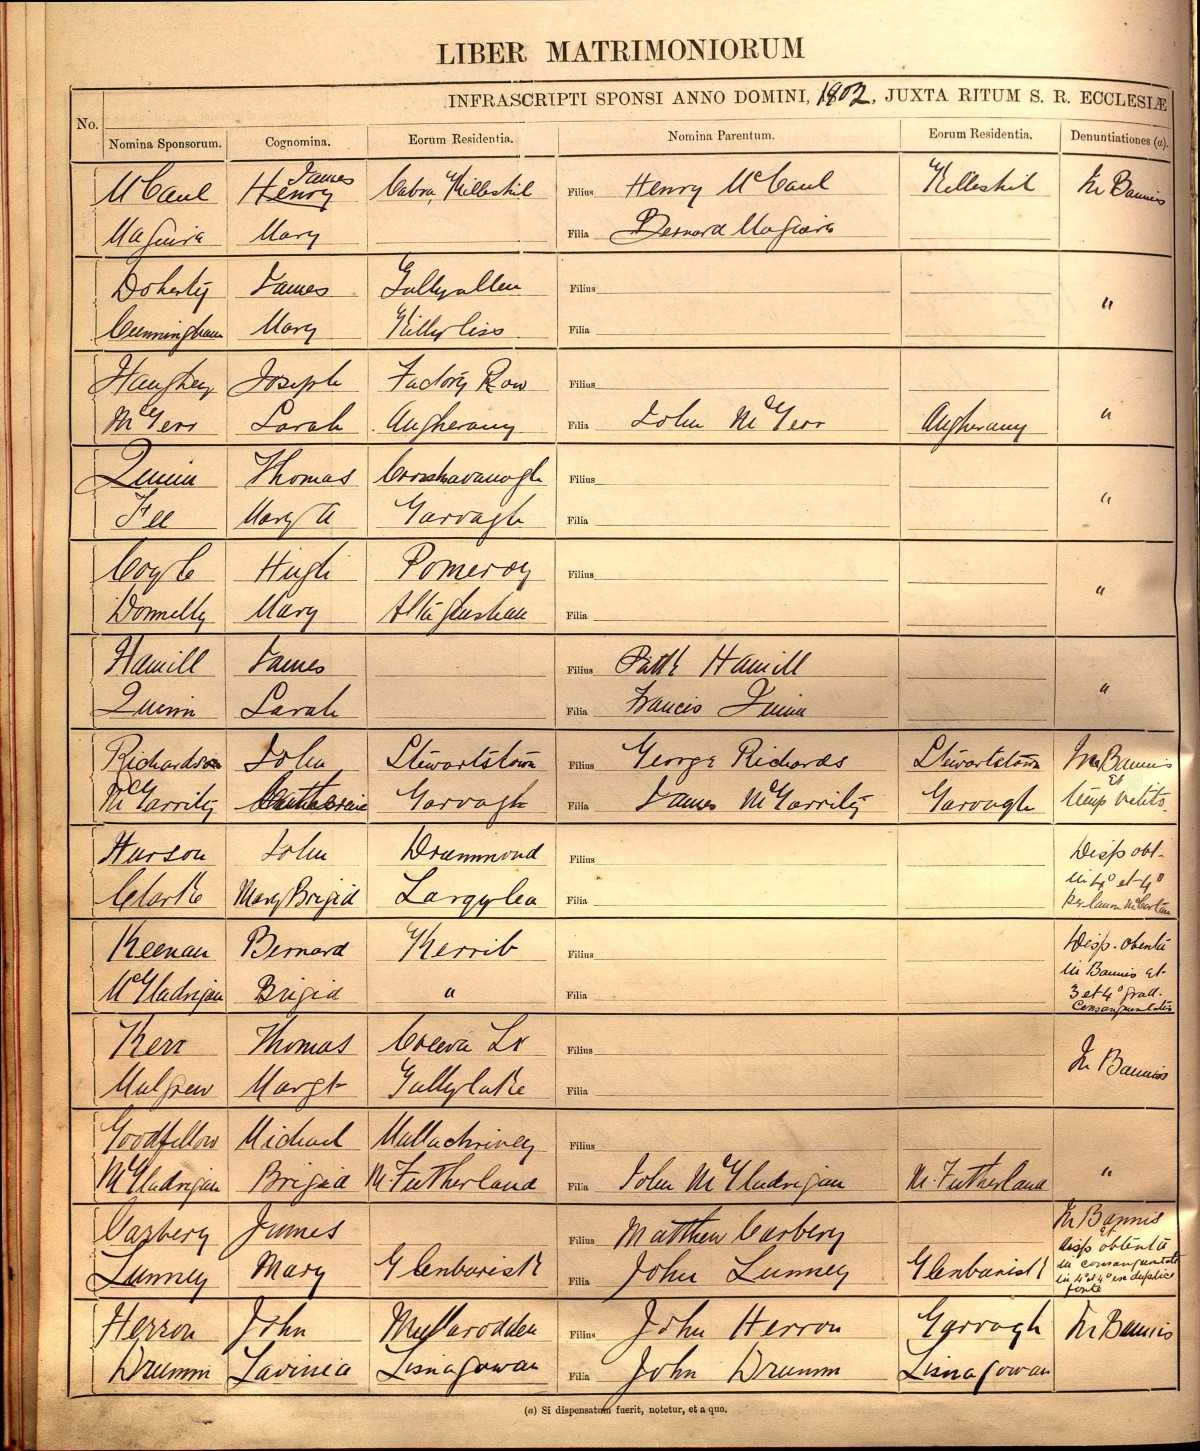 LIBER MATRIMONIORUM
INFRASCRIPTI SPONSI ANNO DOMINI, 1902, JUXTA RITUM S. R. ECCLESIÆ
No. Nomina Sponsorum. Cognomina. Eorum Residentia. Nomina Parentum. Eorum Residentia. Denuntiationes (a).
McCaul Henry James Cabra, Killeshil Filius Henry McCaul Killeshil In Bannis
Maguire Mary Filia Bernard Maguire
Doherty James Gallyallen Filius "
Cunningham Mary Killyliss Filia
Haughey Joseph Factory Row Filius
McGerr Sarah Augherany Filia John McGerr Augherany "
Quinn Thomas Crosshavanagh Filius
Fee Mary A Garvagh Filia "
Coyle Hugh Pomeroy Filius
Donnelly Mary Altaglushan Filia "
Hamill James Filius Patk Hamill
Quinn Sarah Filia Francis Quinn "
Richardson John Stewartstown Filius George Richards Stewartstown In Bannis
McGarrity Catherine Garvagh Filia James McGarrity Garvagh et temp vetito
Hurson John Drummond Filius Disp obt-
Clarke Mary Brigid Largylea Filia in 4º et 4º
Keenan Bernard Kerrib Filius Disp. obenta
in Bannis et
McGladrigan Brigid " Filia 3 et 4º grad.
Consanguinitatis
Kerr Thomas Creeva Lr Filius In Bannis
Mulgrew Margt Gallylake Filia
Goodfellow Michael Mullachrivey Filius
McGladrigan Brigid M. Futherland Filia John McGladrigan M. Futherland "
Carbery James Filius Matthew Carbery In Bannis
et
Disp obtenta
Lunney Mary Glenburisk Filia John Lunney Glenburisk in consanguinitate
in 4º et 4º ex duplice
fonte
Herron John Mullarodden Filius John Herron Garvagh In Bannis
Drumm Lavinia Lisnagowan Filia John Drumm Lisnagowan
(a) Si dispensatum fuerit, notetur, et a quo.